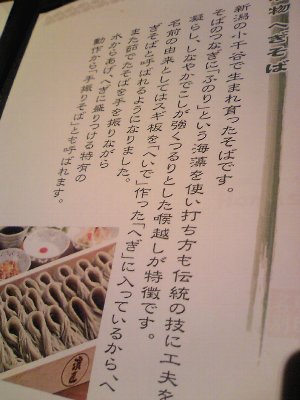 物 へぎそば
新潟の小千谷で生まれ育ったそばです。
そばのつなぎに「ふのり」という海藻を使い打ち方も伝統の技に工夫を
凝らし、しなやかでこしが強くつるりとした喉越しが特徴です。
名前の由来としてはスギ板を「へいで」作った「へぎ」に入っているから、へ
ぎそばと呼ばれるようになりました。
また茹でたそばを手を振りながら
水からあげ、へぎに盛りつける特有の
動作から「手振りそば」とも呼ばれます。